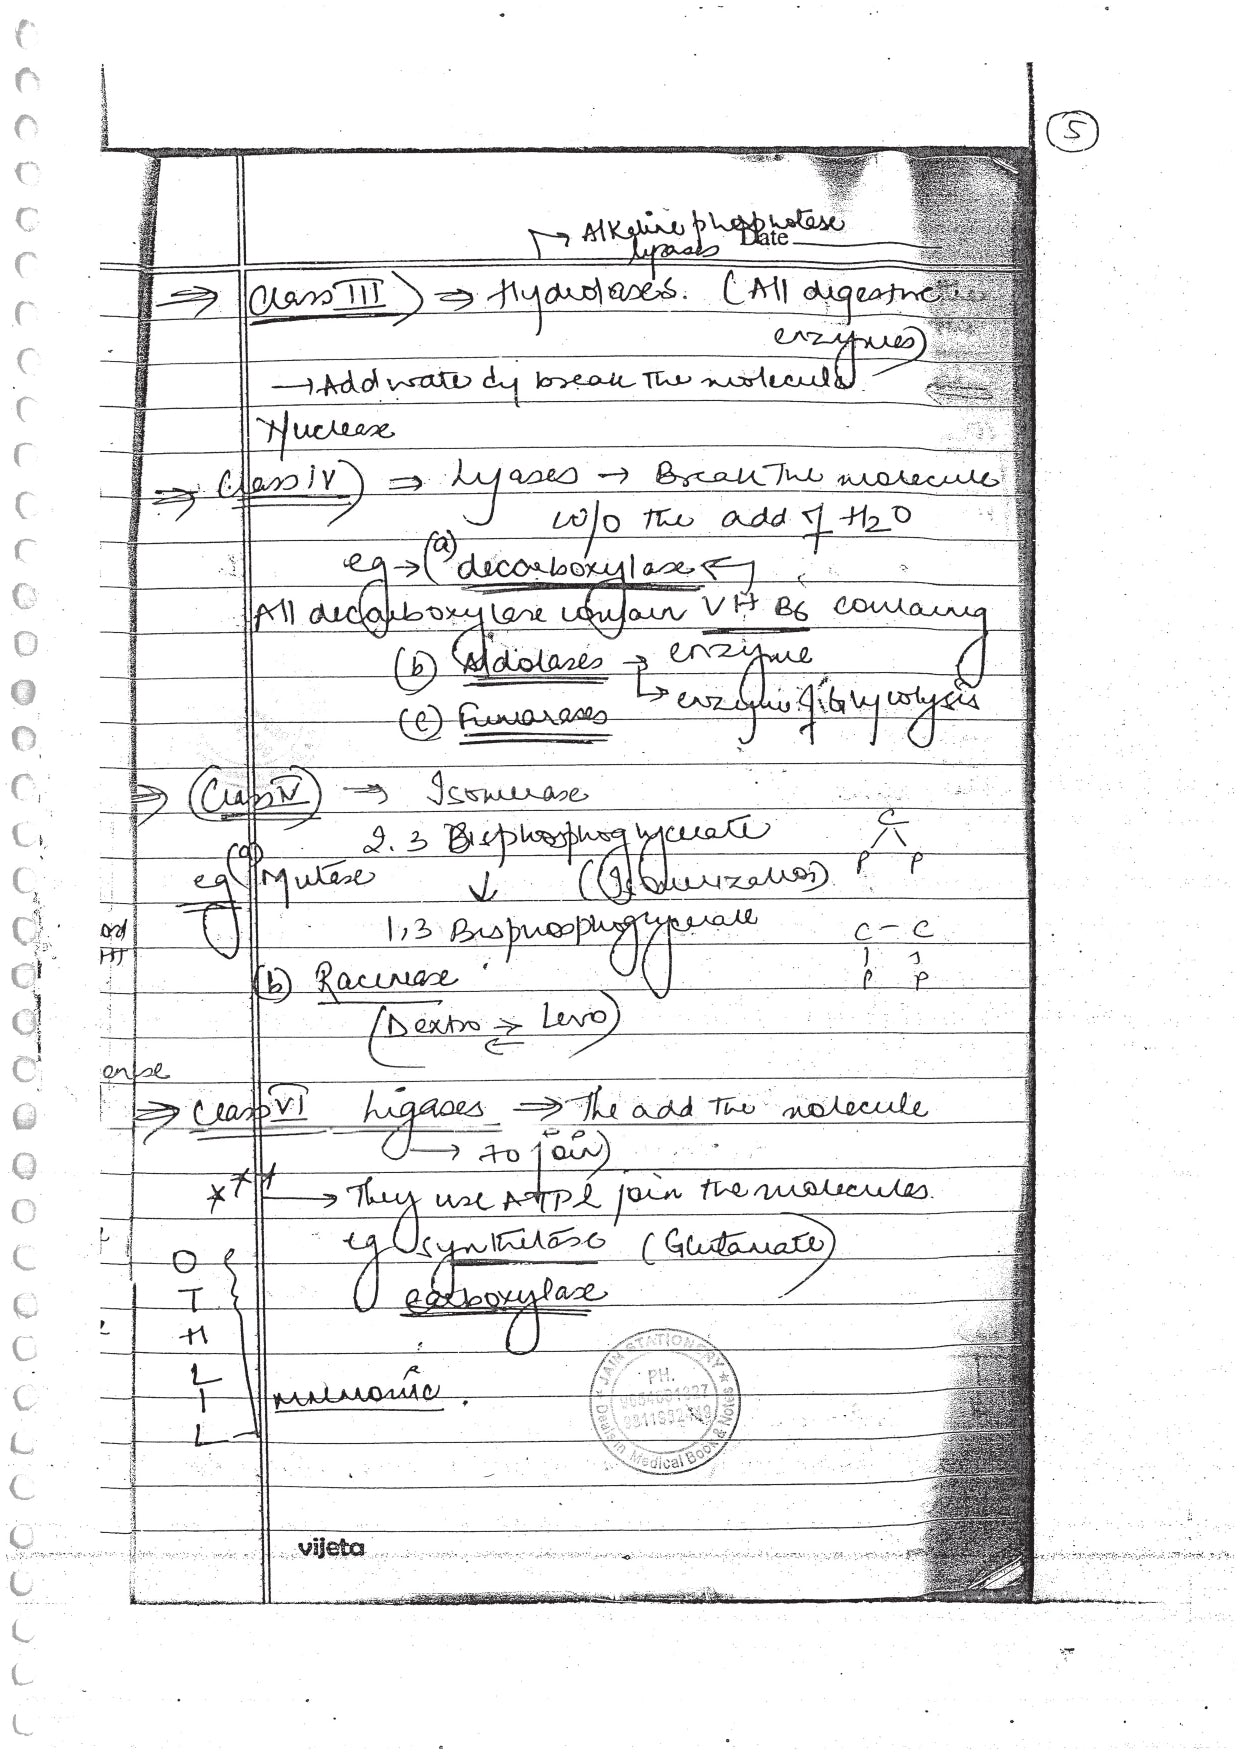 5
Alkaline phosphotase
lypases Date
⇒ Class III ⇒ Hydrolases. (All digestive
enzymes)
→ Add water by break the molecule
Nuclease
⇒ Class IV ⇒ Lyases → Break the molecule
w/o the add of H2O
eg → (a) decarboxylase
All decarboxylase contain VIt B6 containing
(b) Aldolases → enzyme
↳ enzyme of Glycolysis
(c) Fumarases
⇒ Class V → Isomerase
2.3 Bisphosphoglycerate
C
P P
eg (a) Mutase ↓ (Isomerization)
1,3 Bisphosphoglycerate
C - C
P P
(b) Racemase
(Dextro ⇌ Levo)
⇒ Class VI Ligases ⇒ The add the molecule
→ to join)
*** → They use ATP & join the molecules.
eg Synthetase (Glutamate)
carboxylase
O
T
H
L
I
L
mnemonic.
JAIN STATIONERY
PH.
Deals in Medical Book & Notes
vijeta